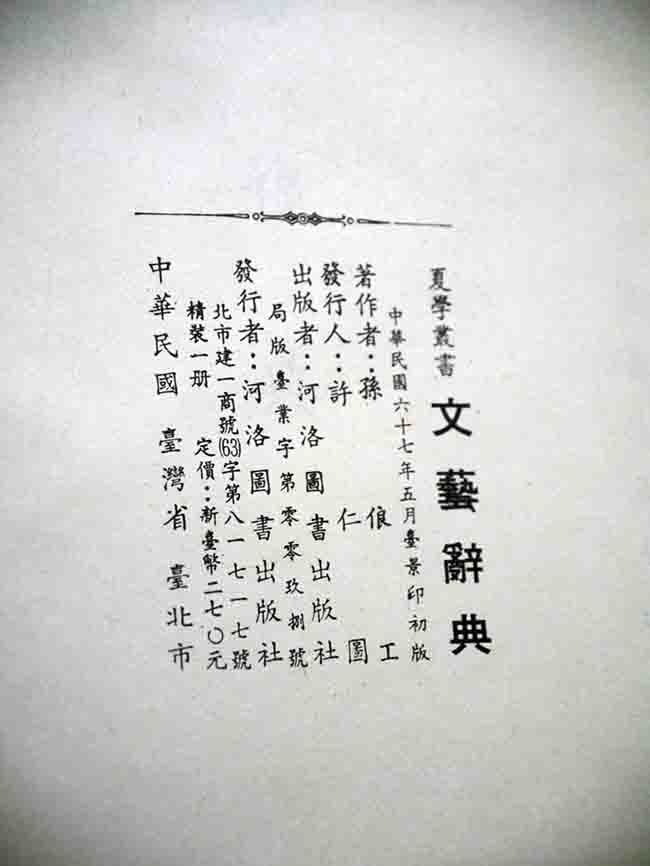 夏學叢書 文藝辭典
中華民國六十七年五月臺景印初版
著作者：孫俍工
發行人：許仁圖
出版者：河洛圖書出版社
局版臺業字第零零玖捌號
發行者：河洛圖書出版社
北市建一商號(63)字第八一七一七號
精裝一册 定價：新臺幣二七〇元
中華民國 臺灣省 臺北市